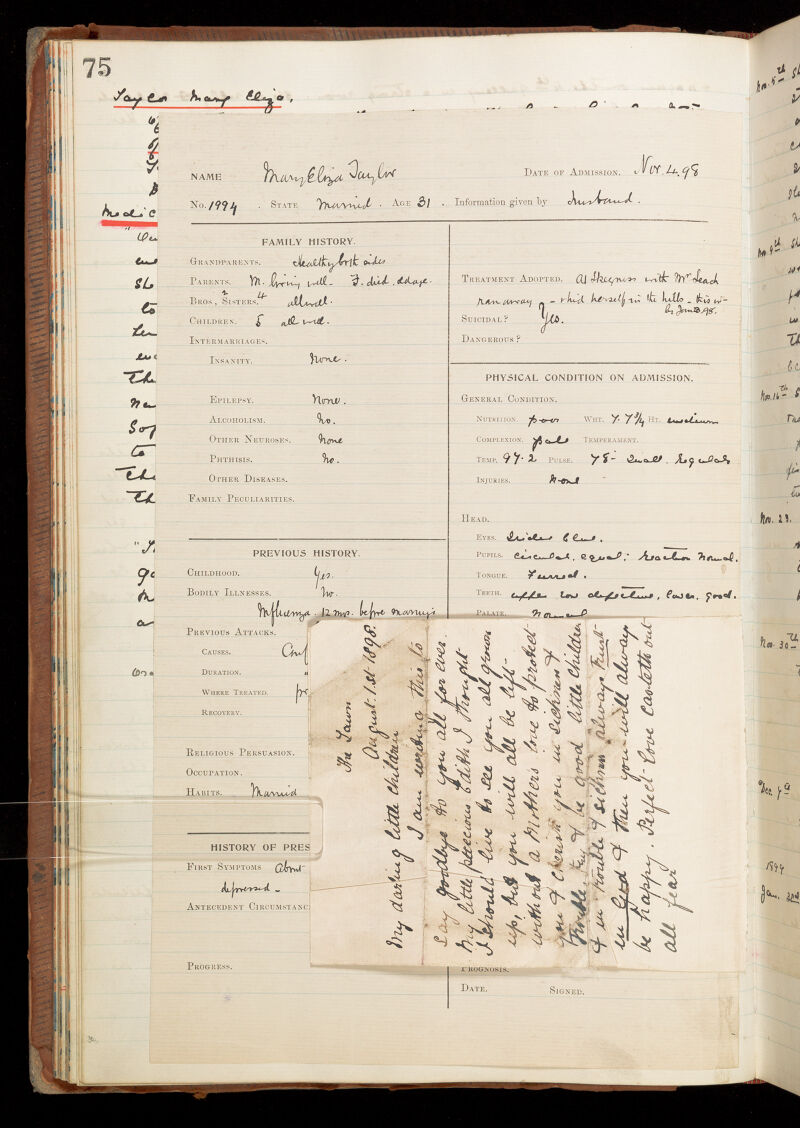 75
Taylor Mary Eliza.
Medic
NAME Mary Eliza Taylor DATE OF ADMISSION. Nov. 4. 98
No. 1994. STATE Married. AGE 31. Information given by Husband.
FAMILY HISTORY.
GRANDPARENTS. Healthy both sides
PARENTS. M. living well - F. died, old age.
BROS, 2 SISTERS. 4 all well.
CHILDREN. 5 all well.
INTERMARRIAGES.
INSANITY. None.
EPILEPSY. None.
ALCOHOLISM. No.
OTHER NEUROSES. None
PHTHISIS. No.
OTHER DISEASES.
FAMILY PECULIARITIES.
PREVIOUS HISTORY.
CHILDHOOD. Yes.
BODILY ILLNESSES. No.
Influenza. 12 mos. before
PREVIOUS ATTACKS.
CAUSES.
DURATION.
WHERE TREATED.
RECOVERY.
RELIGIOUS PERSUASION.
OCCUPATION.
HABITS. Married
HISTORY OF PRES
FIRST SYMPTOMS About
depressed -
ANTECEDENT CIRCUMSTANC
PROGRESS.
TREATMENT ADOPTED. At Skegness with Mr Leach
ran away - & hid herself in the hills - this
SUICIDAL? Yes.
DANGEROUS?
PHYSICAL CONDITION ON ADMISSION.
GENERAL CONDITION.
NUTRITION. poor WHT. 7. 7 3/4 HT. medium
COMPLEXION. pale TEMPERAMENT.
TEMP. 97.2 PULSE. 78 - Small. regular
INJURIES. None
HEAD.
EYES. Irides blue.
PUPILS. circular, equal; reaction normal.
TONGUE. Furred.
TEETH. upper row defective, lower, good.
PALATE. normal
PROGNOSIS.
DATE. SIGNED.
The Lawn
August 1st 1898.
My darling little children
I am writing this to
say goodbye to you all for ever.
My little precious Edith I thought
I should live to see you all grown
up, but you will all be left
without a Mothers love to protect
you & cherish you in sickness &
trouble. Try & be good little children
& in trouble & sickness always trust
in God & then you will always
be happy. Perfect love casteth out
all fear
Nov. 5th
Nov. 9th
Nov. 16th
Nov. 23.
Nov. 30th
Dec. 7th
1899
Jan.